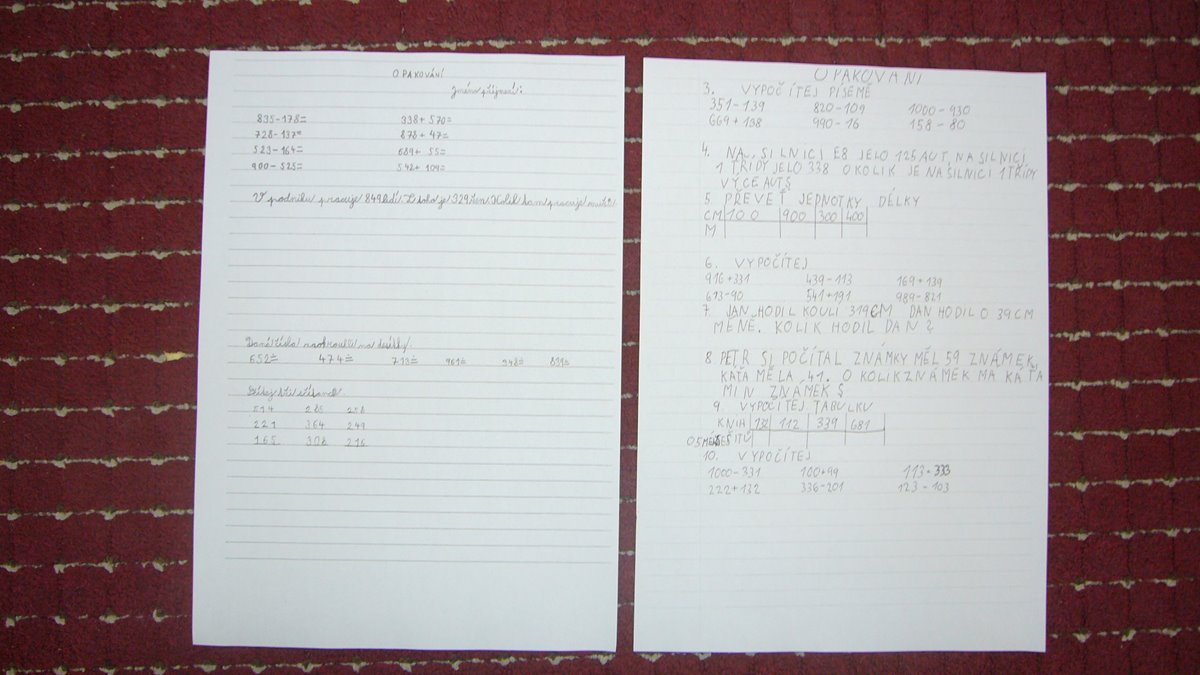 OPAKOVÁNÍ
Jméno příjmení:
835-178= 338+570=
728-137= 878+47=
523-164= 689+55=
900-525= 542+104=
V podniku pracuje 849 lidí. Z toho je 329 žen. Kolik tam pracuje mužů.
Daná čísla zaokrouhli na desítky.
652≐ 474≐ 713≐ 961≐ 948≐ 839≐
514 285 258
221 364 249
165 308 216
OPAKOVANI
3. VYPOČÍTEJ PÍSEMĚ
351-139 820-109 1000-930
669+198 990-16 158-80
4. NA SILNICI E8 JELO 125 AUT, NA SILNICI
1 TŘÍDY JELO 338 O KOLIK JE NA SILNICI 1 TŘÍDY
VÝCE AUT
5. PŘEVEŤ JEDNOTKY DÉLKY
CM 100 900 300 400
M
6. VYPOČÍTEJ
916+331 439-113 169+139
613-90 541+191 989-821
7. JAN HODIL KOULI 319CM DAN HODIL O 39CM
MÉNĚ. KOLIK HODIL DAN ?
8. PETR SI POČÍTAL ZNÁMKY MĚL 59 ZNÁMEK,
KAŤA MĚLA 41. O KOLIK ZNÁMEK MÁ KÁŤA
MIN ZNÁMEK
9. VYPOČÍTEJ TABULKU
KNIH 132 112 339 681
O 5 MÉNĚ SEŠITŮ
10. VYPOČÍTEJ
1000-331 100+99 113+333
222+132 336-201 123-103